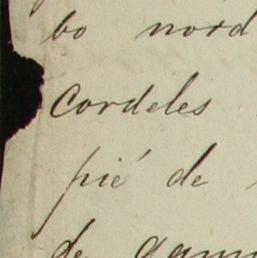 bo nord
cordeles
pié de
de